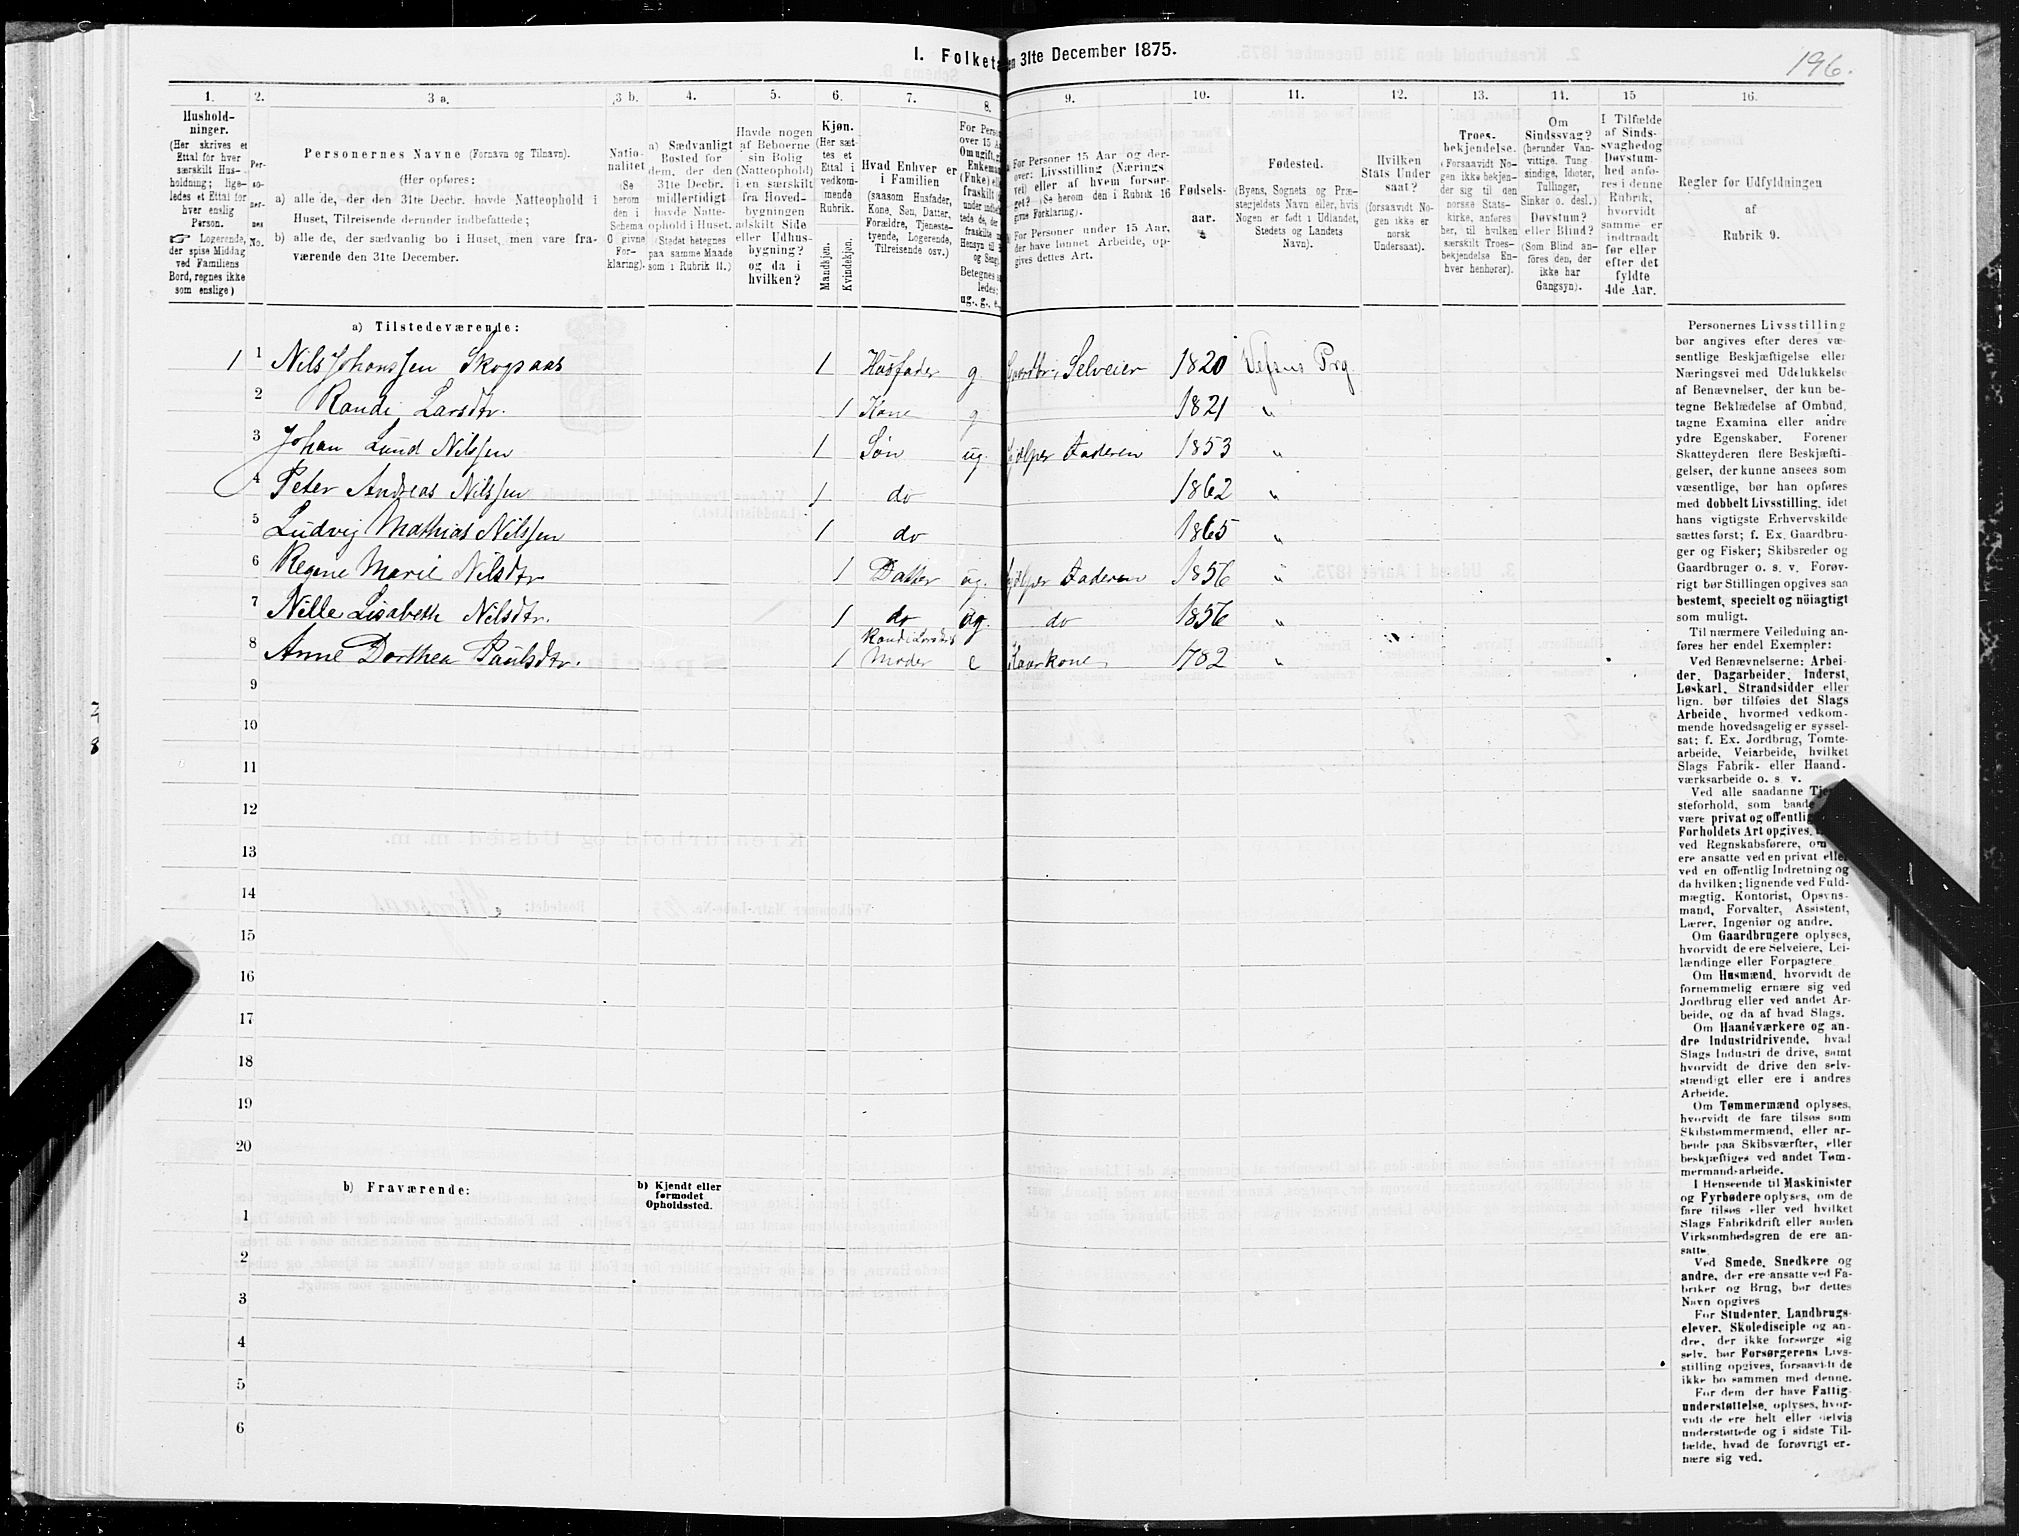 196.
I. Folketa en 31te December 1875.
1. 2. 3 a. 3 b. 4. 5. 6. 7. 8. 9. 10. 11. 12. 13. 14. 15 16.
Hushold-
ninger.
(Her skrives et
Ettal for hver
særskilt Hus-
holdning; lige-
ledes et Ettal for
hver enslig
Person.
☞ Logerende,
der spise Middag
ved Familiens
Bord, regnes ikke
som enslige)
Per-
so-
ner-
nes
No.
Personernes Navne (Fornavn og Tilnavn).
(Her opføres:
a) alle de, der den 31te Decbr. havde Natteophold i
Huset, Tilreisende derunder indbefattede;
b) alle de, der sædvanlig bo i Huset, men vare fra-
værende den 31te December.
Natio-
nalitet
(Se
herom
den i
Schema
O givne
For-
klaring).
a) Sædvanligt
Bosted for
dem, der den
31te Decbr.
midlertidigt
havde Natte-
ophold i Huset.
(Stedet betegnes
paa samme Maade
som i Rubrik II.)
Havde nogen
af Beboerne
sin Bolig
(Natteophold)
i en særskilt
fra Hoved-
bygningen
adskilt Side
eller Udhus-
bygning?
og da i
hvilken?
Kjøn.
(Her sæt-
tes et
Ettal i
vedkom-
mende
Rubrik.
Mandkjøn.
Kvindekjøn.
Hvad Enhver er
i Familien
(saasom Husfader,
Kone, Søn, Datter,
Forældre, Tjeneste-
tyende, Logerende,
Tilreisende osv.)
For Person
over 15 A
Om ugift, g
Enkeman
(Enke) ell
fraskilt
Betegnes s
ledes:
ug., g., e.,
For Personer 15 Aar og der-
over: Livsstilling (Nærings
vei) eller af hvem forsør-
get? (Se herom den i Rubrik 16
givne Forklaring).
For Personer under 15 Aar,
der have lønnet Arbeide, op-
gives dettes Art.
Fødsels-
aar.
Fødested.
(Byens, Sognets og Præ-
stegjeldets Navn eller, hvis
Nogen er født i Udlandet,
Stedets og Landets
Navn).
Hvilken
Stats Under
saat?
(forsaavidt No-
gen ikke er
norsk
Undersaat).
Troes-
bekjendelse.
(Forsaavidt No-
gen ikke bekjen-
der sig til den
norske Stats-
kirke, anføres
her, til hvilken
særskilt Troes-
bekjendelse En-
hver henhører).
Om
Sindssvag?
(herunder Van-
vittige, Tung
sindige, Idioter,
Tullinger,
Sinker o. desl.)
Døvstum?
eller Blind?
(Som Blind an-
føres den, der
ikke har
Gangsyn).
I Tilfælde
af Sinds-
svaghedog
Døvstum-
hed anfø-
res i denne
Rubrik,
hvorvidt
samme er
indtraadt
før eller
efter det
fyldte
4de Aar.
Regler for Udfyldningen
af
Rubrik 9.
a) Tilstedeværende:
1 1 Nils Johanssen Skogsaas 1 Husfader g. Gaardbr., Selveier 1820 Vefsns Prg
2 Randi Larsdtr. 1 Kone g 1821 "
3 Johan Lund Nilssen 1 Søn ug. Hjælper Faderen 1853 "
4 Peter Andreas Nilssen 1 do 1862 "
5 Ludvig Mathias Nilssen 1 do 1865 "
6 Regine Marie Nilsdtr 1 Datter ug. Hjælper Faderen 1856 "
7 Nille Lisabeth Nilsdtr. 1 do ug. do 1856 "
8 Anne Dorthea Paulsdtr. 1 Randi Larsdtrs Moder e Kaarkone, 1782 "
9
10
11
12
13
14
15
16
17
18
19
20
b) Fraværende:
b) Kjendt eller
formodet
Opholdssted.
1
2
3
4
5
6
Personernes Livsstilling
bør angives efter deres væ-
sentlige Beskjæftigelse eller
Næringsvei med Udelukkelse
af Benævnelser, der kun be-
tegne Beklædelse af Ombud,
tagne Examina eller andre
ydre Egenskaber. Forener
Skatteyderen flere Beskjæfti-
gelser, der kunne ansees som
væsentlige, bør han opføres
med dobbelt Livsstilling, idet
hans vigtigste Erhvervskilde
sættes først; f. Ex. Gaardbru-
ger og Fisker; Skibsreder og
Gaardbruger o. s. v. Forøv-
rigt bør Stillingen opgives saa
bestemt, specielt og nöiagtigt
som muligt.
Til nærmere Veiledning an-
føres her endel Exempler:
Ved Benævnelserne: Arbei-
der, Dagarbeider, Inderst,
Løskarl, Strandsidder eller
lign. bør tilføies det Slags
Arbeide, hvormed vedkom-
mende hovedsagelig er syssel-
sat; f. Ex. Jordbrug, Tomte-
arbeide, Veiarbeide, hvilket
Slags Fabrik- eller Haand-
værksarbeide o. s. v.
Ved alle saadanne Tje
steforhold, som baade
være privat og offentlig
Forholdets Art opgives,
ved Regnskabsførere, om
ere ansatte ved en privat eller
ved en offentlig Indretning og
da hvilken; lignende ved Fuld-
mægtig, Kontorist, Opsyns-
mand, Forvalter, Assistent,
Lærer, Ingeniør og andre.
Om Gaardbrugere oplyses,
hvorvidt de ere Selveiere, Lei-
lændinge eller Forpagtere.
Om Husmænd, hvorvidt de
fornemmelig ernære sig ved
Jordbrug eller ved andet Ar-
beide, og da af hvad Slags.
Om Haandværkere og an-
dre Industridrivende, hvad
Slags Industri de drive, samt
hvorvidt de drive den selv-
stændigt eller ere i andres
Arbeide.
Om Tømmermænd oplyses,
hvorvidt de fare tilsøs som
Skibstømmermænd, eller ar-
beide paa Skibsværfter, eller
beskjæftiges ved andet Tøm-
mermand-arbeide.
I Henseende til Maskinister
og Fyrbødere oplyses, om de
fare tilsøs eller ved hvilket
Slags Fabrikdrift eller anden
Virksomhedsgren de ere an-
satte.
Ved Smede, Snedkere og
andre, der ere ansatte ved Fa-
briker og Brug, bør dettes
Navn opgives
For Studenter, Landbrugs-
elever, Skoledisciple og an-
dre, der ikke forsørge sig
selv, bør Forsørgerens Livs-
stilling opgives, forsaavidt de
ikke bo sammen med denne.
For dem der have Fattig-
understøttelse, oplyses, hvor-
vidt de ere helt eller delvis
understøttede og i sidste Til-
fælde, hvad de forøvrigt er-
nære sig ved.